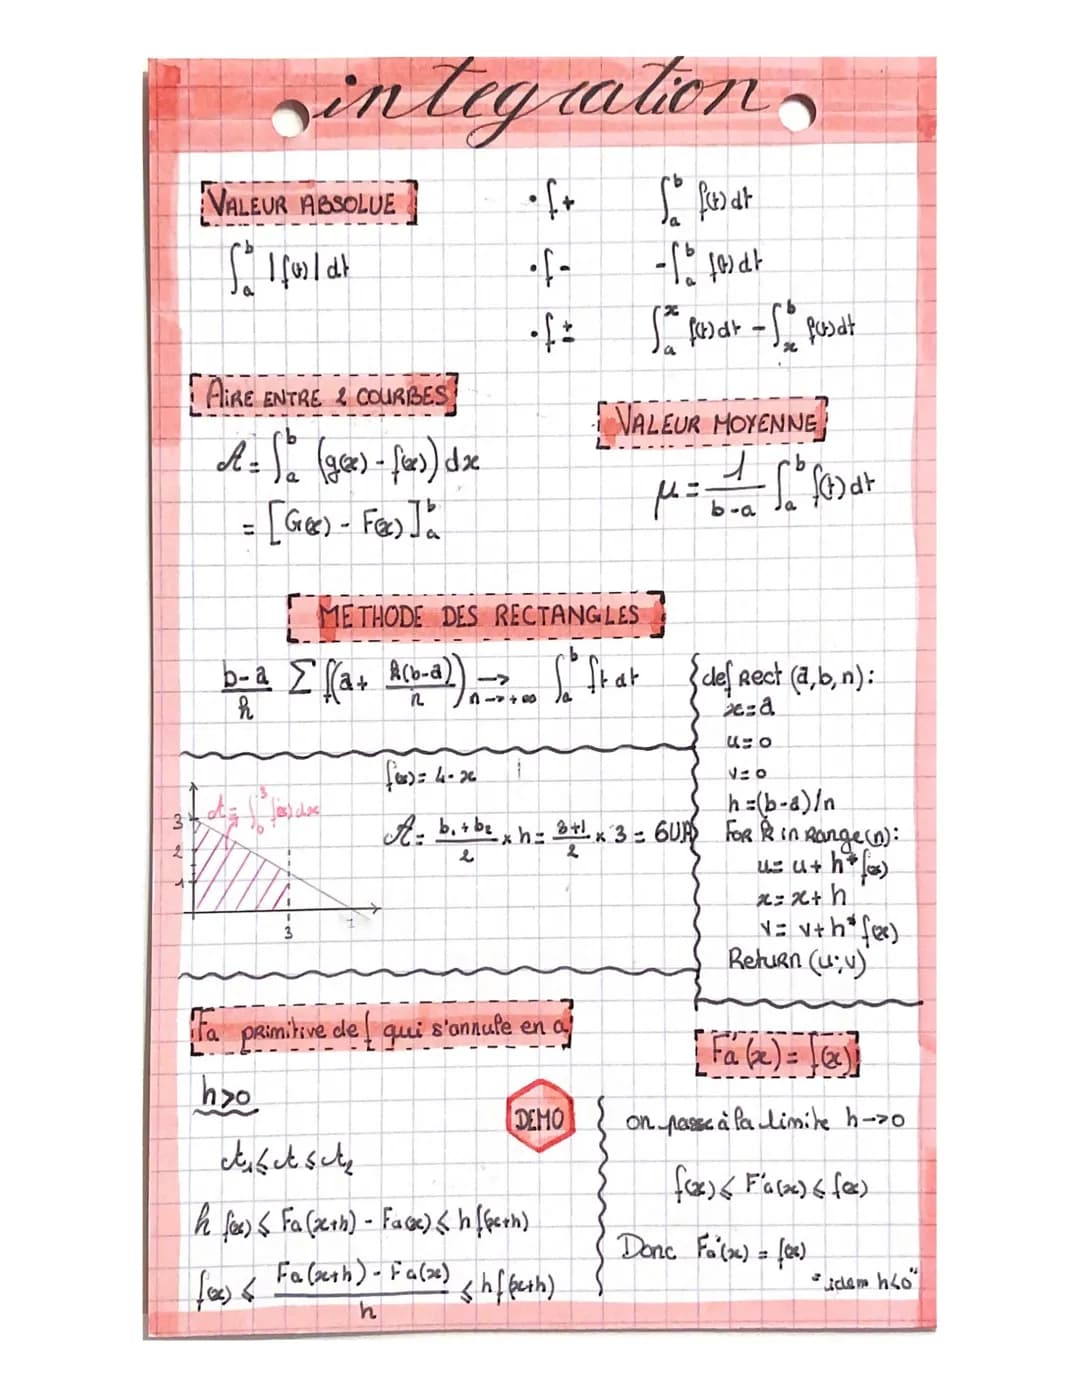 integration
VALEUR ABSOLUE
∫ₐᵇ |f(t)| dt
• f + ∫ₐᵇ f(t) dt
• f - -∫ₐᵇ f(t) dt
• f ± ∫ₐˣ f(t) dt - ∫ₓᵇ f(t) dt
AIRE ENTRE 2 COURBES
A = ∫ₐᵇ (g(x) - f(x)) dx
= [G(x) - F(x)]ₐᵇ
VALEUR MOYENNE
μ = 1/(b-a) ∫ₐᵇ f(t) dt
METHODE DES RECTANGLES
(b-a)/n Σ f(a + k(b-a)/n) → n→+∞ ∫ₐᵇ ft dt
def Rect (a,b,n):
x=a
u=0
v=0
h=(b-a)/n
FOR k in Range(n):
u= u+ h*f(x)
x= x+ h
v= v+h*f(x)
Return (u;v)
f(x)= 4-x
A = ∫₀³ f(x) dx
A = (b₁+b₂)/2 × h = (3+1)/2 × 3 = 6UA
3
2
1
3
Fa primitive de f qui s'annule en a
h>0
DEMO
A₁ ≤ A ≤ A₂
h f(x) ≤ Fa(x+h) - Fa(x) ≤ h f(x+h)
f(x) ≤ (Fa(x+h) - Fa(x))/h ≤ hf(x+h)
Fa'(x) = f(x)
on passe à la limite h->0
f(x) ≤ F'a(x) ≤ f(x)
Donc Fa'(x) = f(x)
"idem h<0"